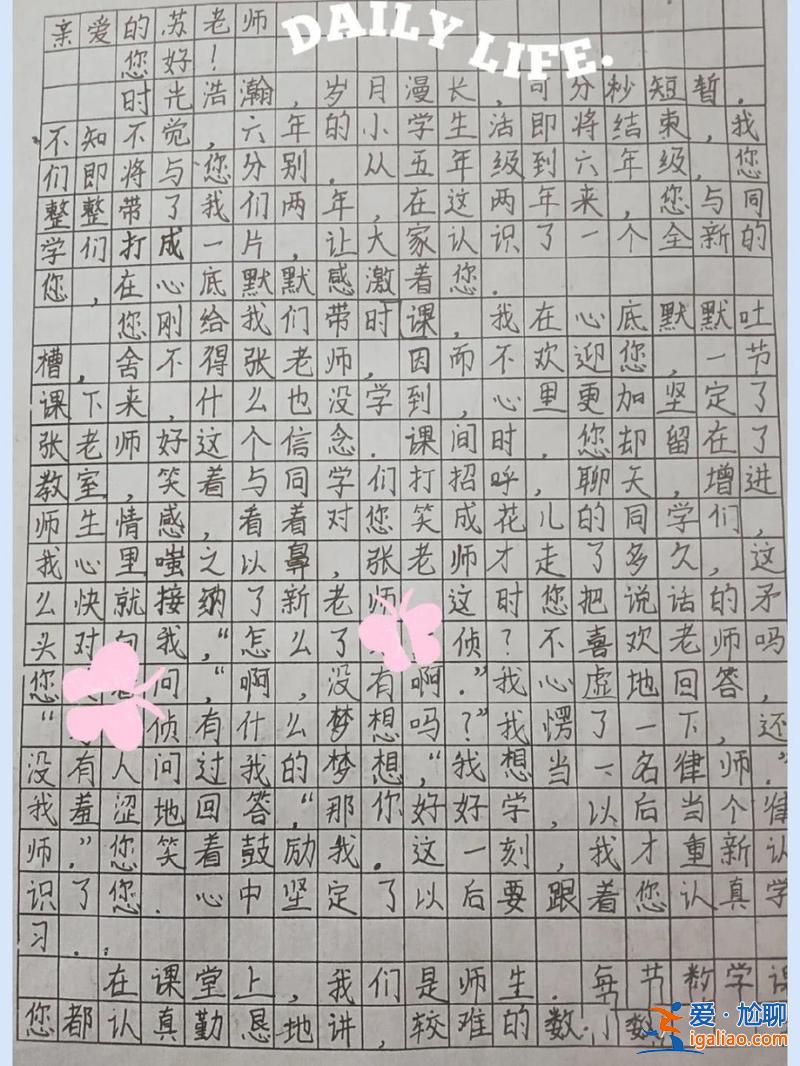 亲爱的苏老师
DAILY LIFE.
您好!
时光浩瀚,岁月漫长,可分秒短暂.
不知不觉,六年的小学生活即将结束,我
们即将与您分别.从五年级到六年级,您
整整带了我们两年,在这两年来,您与同
学们打成一片,让大家认识了一个全新的
您,在心底默默感激着您.
您刚给我们带时课,我在心底默默吐
槽,舍不得张老师,因而不欢迎您,一节
课下来,什么也没学到,心里更加坚定了
张老师好这个信念.课间时,您却留在了
教室,笑着与同学们打招呼,聊天,增进
师生情感,看着对您笑成花儿的同学们,
我心里嗤之以鼻,张老师才走了多久,这
么快就接纳了新老师 这时您把说话的矛
头对向我,“怎么了 侦?不喜欢老师吗
您 问,“啊,没有啊.”我心虚地回答,
“ 侦有什么梦想吗?”我愣了一下,还
没有人问过我的梦想,“我想当一名律师.”
我羞涩地回答,“那你好好学,以后当个律
师.”您笑着鼓励我.这一刻,我才重新认
识了您.心中坚定了以后要跟着您认真学
习..
在课堂上,我们是师生.每节数学课
您都认真勤恳地讲,较难的数小数
爱·尬聊
igaliao.com